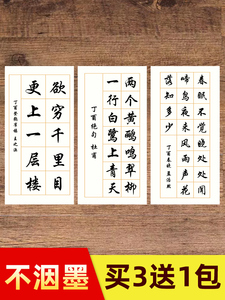 欲穷千里目
更上一层楼
丁酉登鹳雀楼 王之涣
两个黄鹂鸣翠柳
一行白鹭上青天
丁酉绝句 杜甫
春眠不觉晓处处闻
啼鸟夜来风雨声花
落知多少
丁酉春晓 孟浩然
不洇墨
买3送1包